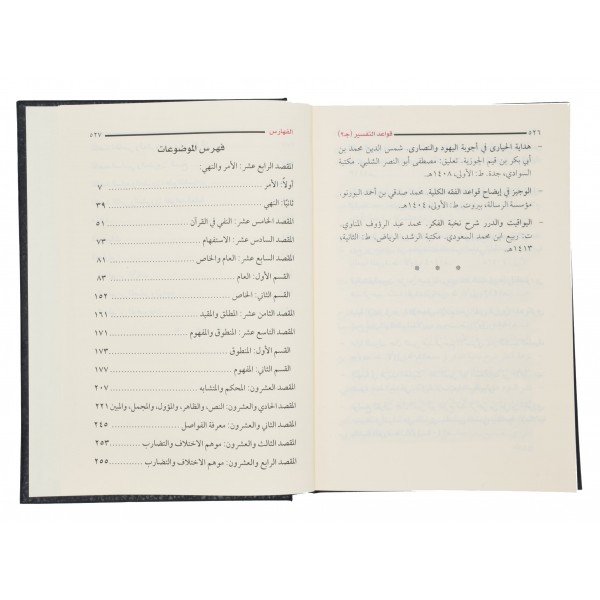 ٥٢٦ قواعد التفسير (جـ٢)
- هداية الحيارى في أجوبة اليهود والنصارى. شمس الدين محمد بن
أبي بكر بن قيم الجوزية. تعليق: مصطفى أبو النصر الشلبي. مكتبة
السوادي، جدة. ط: الأولى، ١٤٠٨هـ.
- الوجيز في إيضاح قواعد الفقه الكلية. محمد صدقي بن أحمد البورنو.
مؤسسة الرسالة، بيروت. ط: الأولى، ١٤٠٤هـ.
- اليواقيت والدرر شرح نخبة الفكر. محمد عبد الرؤوف المناوي.
ت: ربيع ابن محمد السعودي. مكتبة الرشد، الرياض. ط: الثانية،
١٤١٣هـ.
* * *
الفهارس ٥٢٧
فهرس الموضوعات
المقصد الرابع عشر: الأمر والنهي:
أولاً: الأمر ٧
ثانيًا: النهي ٣٩
المقصد الخامس عشر: النفي في القرآن ٥١
المقصد السادس عشر: الاستفهام ٧٣
المقصد السابع عشر: العام والخاص ٨١
القسم الأول: العام ٨٣
القسم الثاني: الخاص ١٥٢
المقصد الثامن عشر: المطلق والمقيد ١٦١
المقصد التاسع عشر: المنطوق والمفهوم ١٧١
القسم الأول: المنطوق ١٧٣
القسم الثاني: المفهوم ١٧٧
المقصد العشرون: المحكم والمتشابه ٢٠٧
المقصد الحادي والعشرون: النص، والظاهر، والمؤول، والمجمل، والمبين ٢٢١
المقصد الثاني والعشرون: معرفة الفواصل ٢٤٥
المقصد الثالث والعشرون: موهم الاختلاف والتضارب ٢٥٣
المقصد الرابع والعشرون: موهم الاختلاف والتضارب ٢٥٥